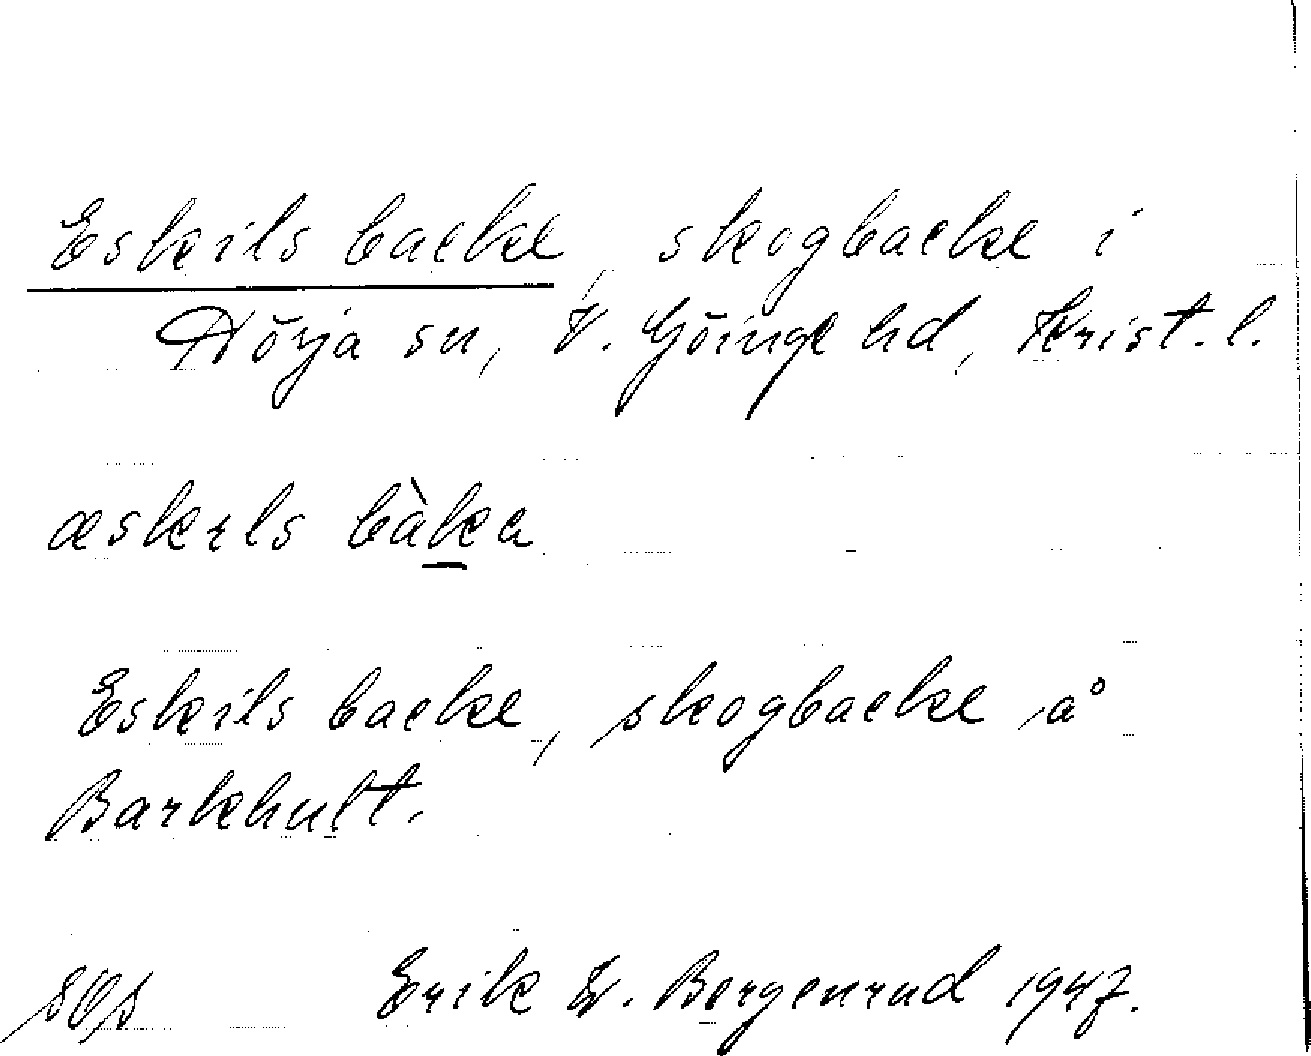 Eskils backe, skogbacke i
Nörja sn, V. Göinge hd, Krist. l.
æskɪls bàka
Eskils backe, skogbacke å
Barkhult.
Erik W. Bergenrud 1947.